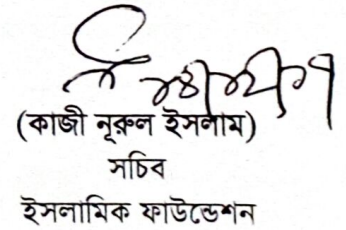 (কাজী নূরুল ইসলাম)
সচিব
ইসলামিক ফাউন্ডেশন